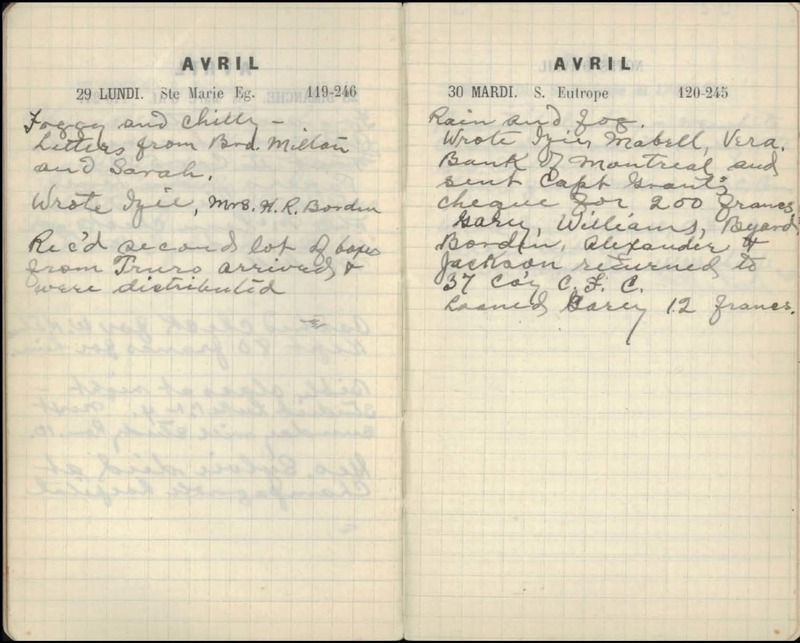 AVRIL
29 LUNDI. Ste Marie Eg. 119-246
Foggy and chilly -
Letters from Bro. Milton
and Sarah.
Wrote Izie, Mrs. H. R. Borden
Rec'd second lot of boxes
from Truro arrived, &
were distributed
AVRIL
30 MARDI. S. Eutrope 120-245
Rain and fog.
Wrote Izie, Mabell, Vera,
Bank of Montreal and
sent Capt Grant's
cheque for 200 francs
Garey, Williams, Byard,
Borden, Alexander &
Jackson returned to
37 Co'y C. F. C.
Loaned Garey 12 francs.